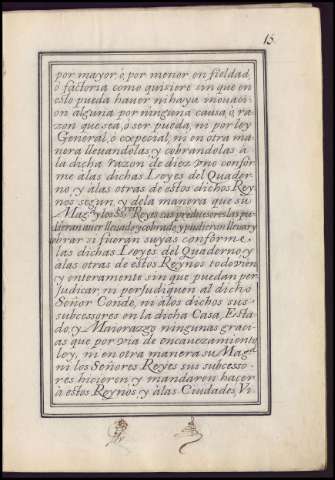 15.
por mayor, o, por menor en fieldad,
o factoria como quisiere sin que en
esto pueda haver ni haya mouaci-
on alguna por ninguna causa, o, ra-
zon que sea, o ser pueda, ni por ley
General, o expecial, ni en otra ma-
nera lleuandolas, y cobrandolas â
la dicha razon de diez vno confor
me alas dichas Leyes del Quader
no, y âlas otras de estos dichos Rey
nos segun, y dela manera que su
Magd. y los Sres. Reyes sus predecesores las pu-
dieran auer lleuado, y cobrado, y pudieron lleuar, y
cobrar si fueran suyas conforme
las dichas Leyes del Quaderno, y
âlas otras de estos Reynos todo vien
y enteramente sin que puedan per
Judicar, ni perjudiquen al dicho
Señor Conde, ni âlos dichos sus
subcessores en la dicha Casa, Esta
do, y Maiorazgo ningunas graci-
as que por via de encauezamiento
ley, ni en otra manera su Magd.
ni los Señores Reyes sus subcesso-
res hicieren, y mandaren hacer
â estos Reynos, y âlas Ciudades, Vi